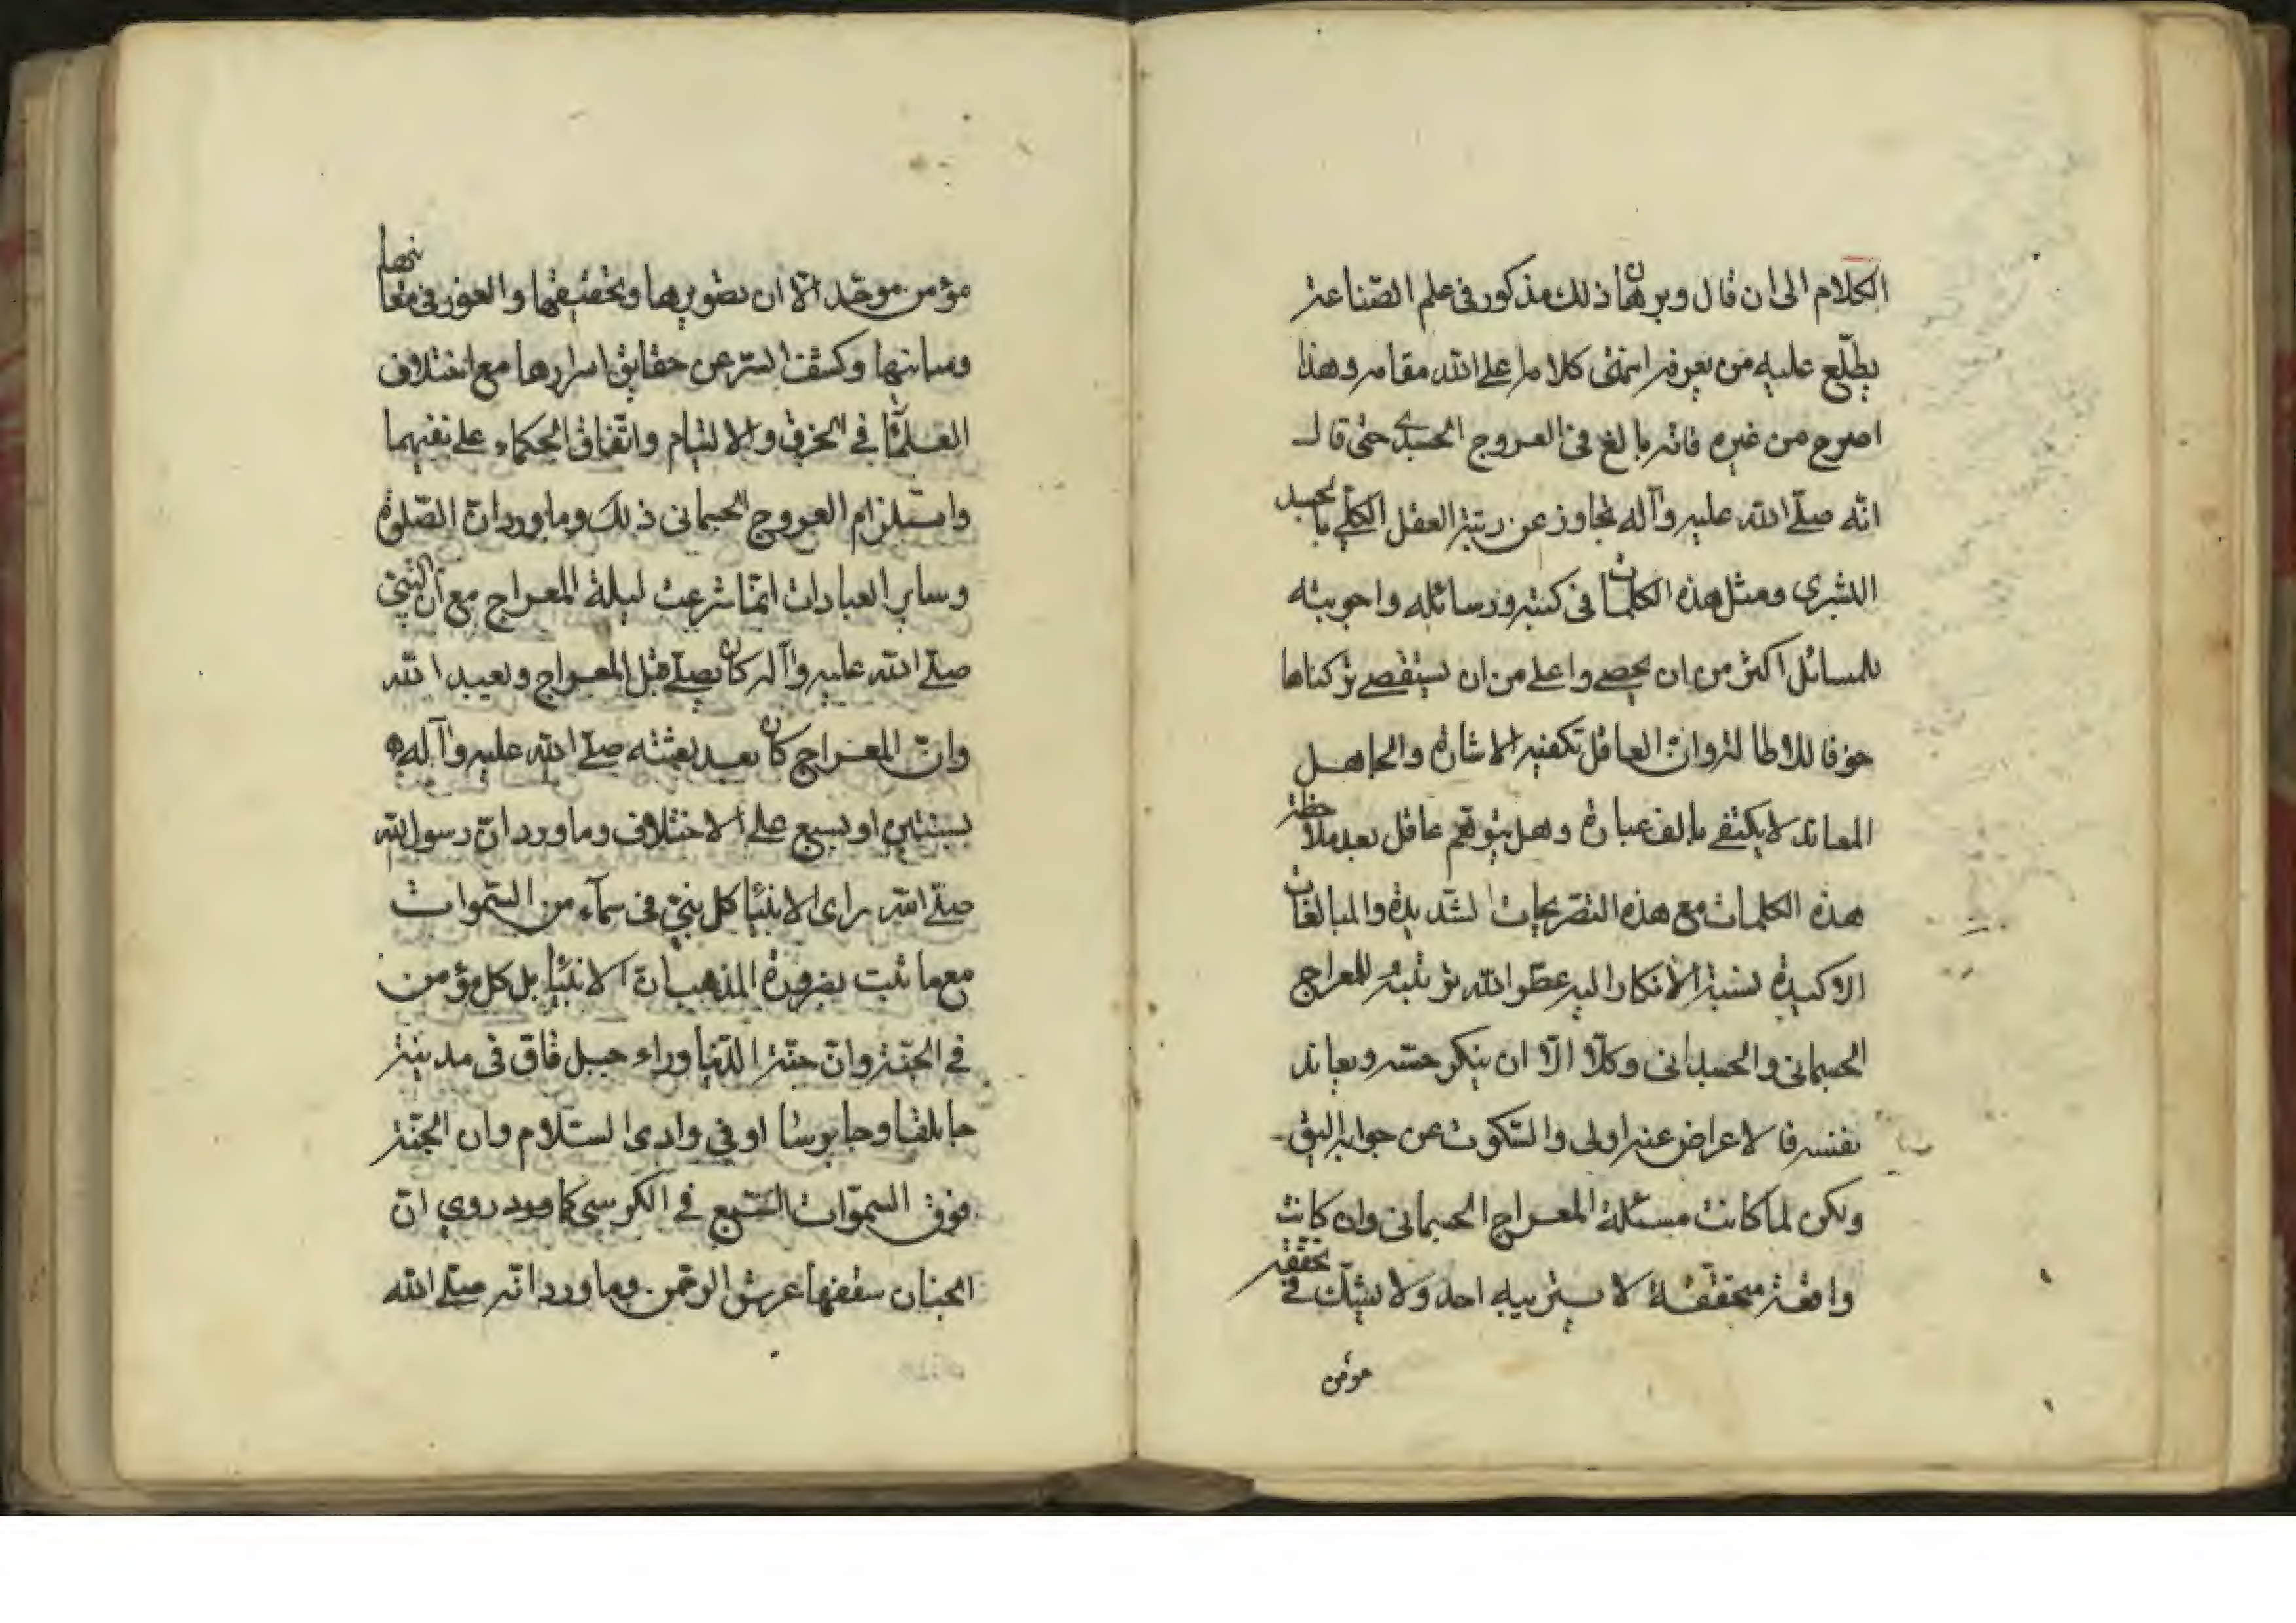 الكلام الى ان قال وبرهان ذلك مذكور فى علم الصّناعة
يطّلع عليه من يعرفه انتهى كلامه اعلى الله مقامه وهذا
اصرح من غيره فانه بالغ فى العروج الجسدى حتى قال
انّه صلّى الله عليه وآله تجاوز عن رتبة العقل الكلّى بالجسد
البشرى ومثل هذه الكلمات فى كتبه ورسائله واجوبته
للمسائل اكثر من ان يحصى واعلى من ان يستقصى تركناها
خوفا للاطالة وانّ العاقل تكفيه الاشارة والجاهل
المعاند لا يكتفى بالف عبارة وهل يتوهّم عاقل بعد ملاحظة
هذه الكلمات مع هذه التصريحات الشديدة والمبالغات
الاكيدة نسبة الانكار اليه عطّر الله تربته للمعراج
الجسمانى والجسدانى وكلّا الّا ان ينكر حسّه ويعاند
نفسه فالاعراض عنه اولى والسّكوت عن جوابه اليق
ولكن لما كانت مسئلة المعراج الجسمانى وان كانت
واقعة متحقّقة لا يستريبه احد ولا يشكّ فى تحقّقه
مؤمن
مؤمن موحّد الّا ان تصويرها وتحقيقها والغور فى معانيها
ومبانيها وكشف السّر عن حقايق اسرارها مع اختلاف
العلمآء فى الخرق والالتيام واتّفاق الحكماء على نفيهما
واستلزام العروج الجسمانى ذلك وما ورد انّ الصّلوة
وساير العبادات انّما شرعت ليلة المعراج مع انّ النّبىّ
صلّى الله عليه وآله كان يصلّى قبل المعراج ويعبد الله
وانّ المعراج كان بعد بعثته صلّى الله عليه وآله
بسنتين او بسبع على الاختلاف وما ورد انّ رسول الله
صلّى الله راى الانبيا كل نبىّ فى سمآء من السّموات
مع ما ثبت بضرورة المذهب انّ الانبيا بل كل مؤمن
فى الجنّة وانّ جنّة الدّنيا وراء جبل قاف فى مدينة
جابلقا وجابرسا او فى وادى السّلام وان الجنّة
فوق السموّات السّبع فى الكرسى كما ورد روى انّ
الجنان سقفها عرش الرحمن وما ورد انّه صلّى الله